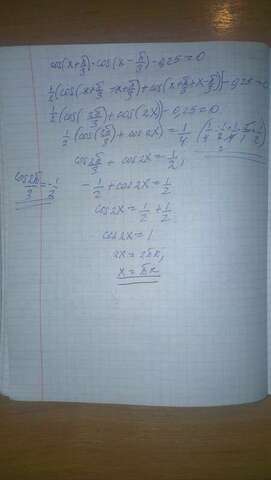 cos(x+π/3)·cos(x-π/3)-0,25=0
1/2(cos(x+π/3-x+π/3)+cos(x+π/3+x-π/3))-0,25=0
1/2(cos(2π/3)+cos(2x))-0,25=0
1/2(cos(2π/3)+cos2x)=1/4
cos2π/3+cos2x=1/2;
cos2π/3=-1/2
-1/2+cos2x=1/2
cos2x=1/2+1/2
cos2x=1
2x=2πk,
x=πk